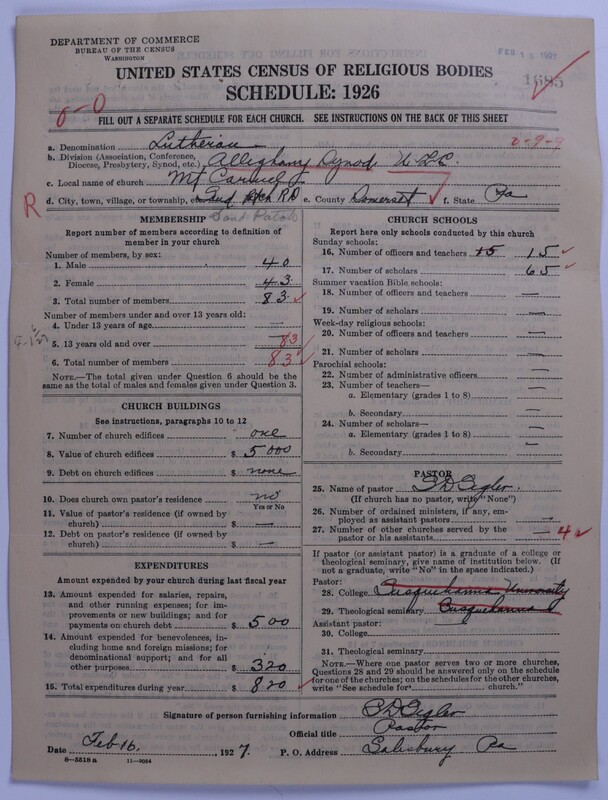 DEPARTMENT OF COMMERCE
BUREAU OF THE CENSUS
WASHINGTON
UNITED STATES CENSUS OF RELIGIOUS BODIES
SCHEDULE: 1926
FILL OUT A SEPARATE SCHEDULE FOR EACH CHURCH. SEE INSTRUCTIONS ON THE BACK OF THIS SHEET
a. Denomination Lutheran
b. Division (Association, Conference, Diocese, Presbytery, Synod, etc.) Alleghany Synod U.L.C.
c. Local name of church Mt Carmel
d. City, town, village, or township, etc. e. County Somerset f. State Pa
R
MEMBERSHIP
Report number of members according to definition of member in your church
Number of members, by sex:
1. Male 40
2. Female 43
3. Total number of members 83
Number of members under and over 13 years old:
4. Under 13 years of age —
5. 13 years old and over 83
6. Total number of members 83
NOTE.—The total given under Question 6 should be the same as the total of males and females given under Question 3.
CHURCH BUILDINGS
See instructions, paragraphs 10 to 12
7. Number of church edifices one
8. Value of church edifices $ 5000
9. Debt on church edifices $ none
10. Does church own pastor's residence no
Yes or No
11. Value of pastor's residence (if owned by church) $ —
12. Debt on pastor's residence (if owned by church) $ —
EXPENDITURES
Amount expended by your church during last fiscal year
13. Amount expended for salaries, repairs, and other running expenses; for improvements or new buildings; and for payments on church debt $ 500
14. Amount expended for benevolences, including home and foreign missions; for denominational support; and for all other purposes $ 320
15. Total expenditures during year $ 820
CHURCH SCHOOLS
Report here only schools conducted by this church
Sunday schools:
16. Number of officers and teachers 15 15
17. Number of scholars 65
Summer vacation Bible schools:
18. Number of officers and teachers —
19. Number of scholars —
Week-day religious schools:
20. Number of officers and teachers —
21. Number of scholars —
Parochial schools:
22. Number of administrative officers —
23. Number of teachers—
a. Elementary (grades 1 to 8) —
b. Secondary —
24. Number of scholars—
a. Elementary (grades 1 to 8) —
b. Secondary —
PASTOR
25. Name of pastor S D Sigler
(If church has no pastor, write "None")
26. Number of ordained ministers, if any, employed as assistant pastors —
27. Number of other churches served by the pastor or his assistants — 4
If pastor (or assistant pastor) is a graduate of a college or theological seminary, give name of institution below. (If not a graduate, write "No" in the space indicated.)
Pastor:
28. College Susquehanna University
29. Theological seminary Susquehanna
Assistant pastor:
30. College
31. Theological seminary
NOTE.—Where one pastor serves two or more churches, Questions 28 and 29 should be answered only on the schedule for one of the churches; on the schedules for the other churches, write "See schedule for church."
Signature of person furnishing information S D Sigler
Official title Pastor
Date Feb 16, 1927. P. O. Address Salisbury Pa
8—5518 a 11—9064